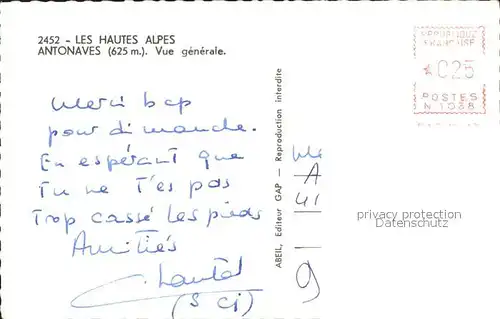 2452 - LES HAUTES ALPES
ANTONAVES (625 m.). Vue générale.
REPUBLIQUE
FRANÇAISE
025
POSTES
N 1038
Merci bcp
pour dimanche.
En espérant que
Tu ne T'es pas
Trop cassé les pieds
Amitiés
Chantal
ABEIL, Editeur GAP - Reproduction interdite
A
41
9
privacy protection
Datenschutz